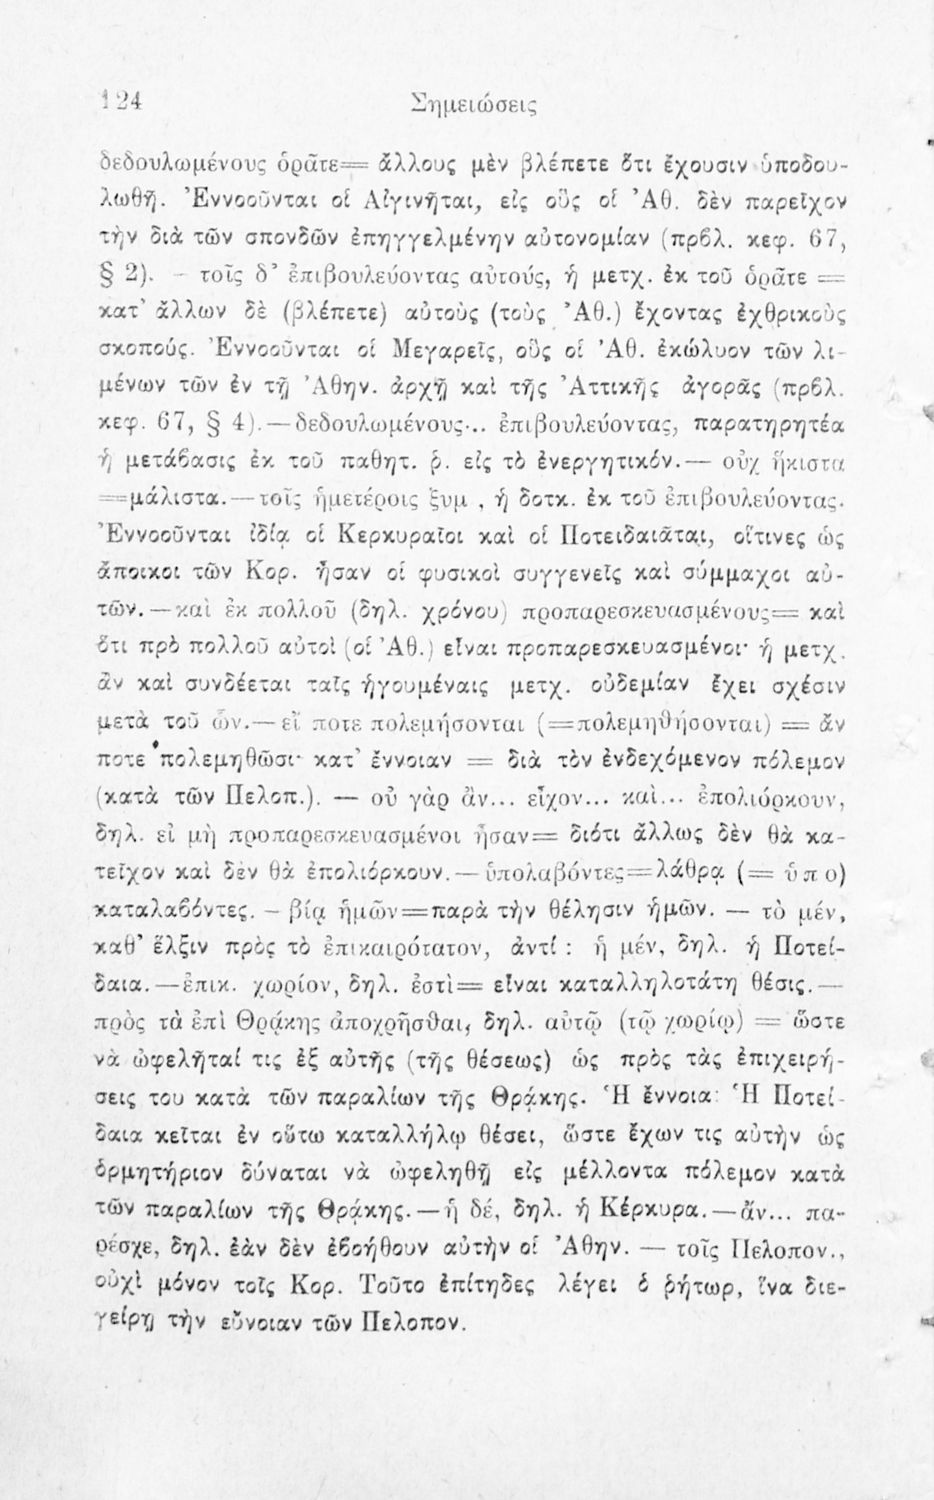 124 Σημειώσεις
δεδουλωμένους ὁρᾶτε== ἄλλους μὲν βλέπετε ὅτι ἔχουσιν ὑποδου-
λωθῆ. Ἐννοοῦνται οἱ Αἰγινῆται, εἰς οὓς οἱ Ἀθ. δὲν παρεῖχον
τὴν διὰ τῶν σπονδῶν ἐπηγγελμένην αὐτονομίαν (πρβλ. κεφ. 67,
§ 2). — τοῖς δ' ἐπιβουλεύοντας αὐτούς, ἡ μετχ. ἐκ τοῦ ὁρᾶτε ==
κατ' ἄλλων δὲ (βλέπετε) αὐτοὺς (τοὺς Ἀθ.) ἔχοντας ἐχθρικοὺς
σκοπούς. Ἐννοοῦνται οἱ Μεγαρεῖς, οὓς οἱ Ἀθ. ἐκώλυον τῶν λι-
μένων τῶν ἐν τῇ Ἀθην. ἀρχῇ καὶ τῆς Ἀττικῆς ἀγορᾶς (πρβλ.
κεφ. 67, § 4).—δεδουλωμένους... ἐπιβουλεύοντας, παρατηρητέα
ἡ μετάβασις ἐκ τοῦ παθητ. ῥ. εἰς τὸ ἐνεργητικόν.— οὐχ ἥκιστα
==μάλιστα.—τοῖς ἡμετέροις ξυμ., ἡ δοτκ. ἐκ τοῦ ἐπιβουλεύοντας.
Ἐννοοῦνται ἰδίᾳ οἱ Κερκυραῖοι καὶ οἱ Ποτειδαιᾶται, οἵτινες ὡς
ἄποικοι τῶν Κορ. ἦσαν οἱ φυσικοὶ συγγενεῖς καὶ σύμμαχοι αὐ-
τῶν.—καὶ ἐκ πολλοῦ (δηλ. χρόνου) προπαρεσκευασμένους== καὶ
ὅτι πρὸ πολλοῦ αὐτοὶ (οἱ Ἀθ.) εἶναι προπαρεσκευασμένοι· ἡ μετχ.
ἂν καὶ συνδέεται ταῖς ἡγουμέναις μετχ. οὐδεμίαν ἔχει σχέσιν
μετὰ τοῦ ὧν.— εἴ ποτε πολεμήσονται (==πολεμηθήσονται) == ἄν
ποτε πολεμηθῶσι· κατ' ἔννοιαν == διὰ τὸν ἐνδεχόμενον πόλεμον
(κατὰ τῶν Πελοπ.). — οὐ γὰρ ἂν... εἶχον... καὶ... ἐπολιόρκουν,
δηλ. εἰ μὴ προπαρεσκευασμένοι ἦσαν== διότι ἄλλως δὲν θὰ κα-
τεῖχον καὶ δὲν θὰ ἐπολιόρκουν.—ὑπολαβόντες==λάθρᾳ (== ὑπο)
καταλαβόντες. – βίᾳ ἡμῶν==παρὰ τὴν θέλησιν ἡμῶν. — τὸ μέν,
καθ' ἕλξιν πρὸς τὸ ἐπικαιρότατον, ἀντί : ἡ μέν, δηλ. ἡ Ποτεί-
δαια.—ἐπικ. χωρίον, δηλ. ἐστὶ== εἶναι καταλληλοτάτη θέσις.—
πρὸς τὰ ἐπὶ Θρᾴκης ἀποχρῆσθαι, δηλ. αὐτῷ (τῷ χωρίῳ) == ὥστε
νὰ ὠφελῆταί τις ἐξ αὐτῆς (τῆς θέσεως) ὡς πρὸς τὰς ἐπιχειρή-
σεις του κατὰ τῶν παραλίων τῆς Θρᾴκης. Ἡ ἔννοια: Ἡ Ποτεί-
δαια κεῖται ἐν οὕτω καταλλήλῳ θέσει, ὥστε ἔχων τις αὐτὴν ὡς
ὁρμητήριον δύναται νὰ ὠφεληθῇ εἰς μέλλοντα πόλεμον κατὰ
τῶν παραλίων τῆς Θρᾴκης.—ἡ δέ, δηλ. ἡ Κέρκυρα.—ἂν... πα-
ρέσχε, δηλ. ἐὰν δὲν ἐβοήθουν αὐτὴν οἱ Ἀθην. — τοῖς Πελοπον.,
οὐχὶ μόνον τοῖς Κορ. Τοῦτο ἐπίτηδες λέγει ὁ ῥήτωρ, ἵνα διε-
γείρῃ τὴν εὔνοιαν τῶν Πελοπον.